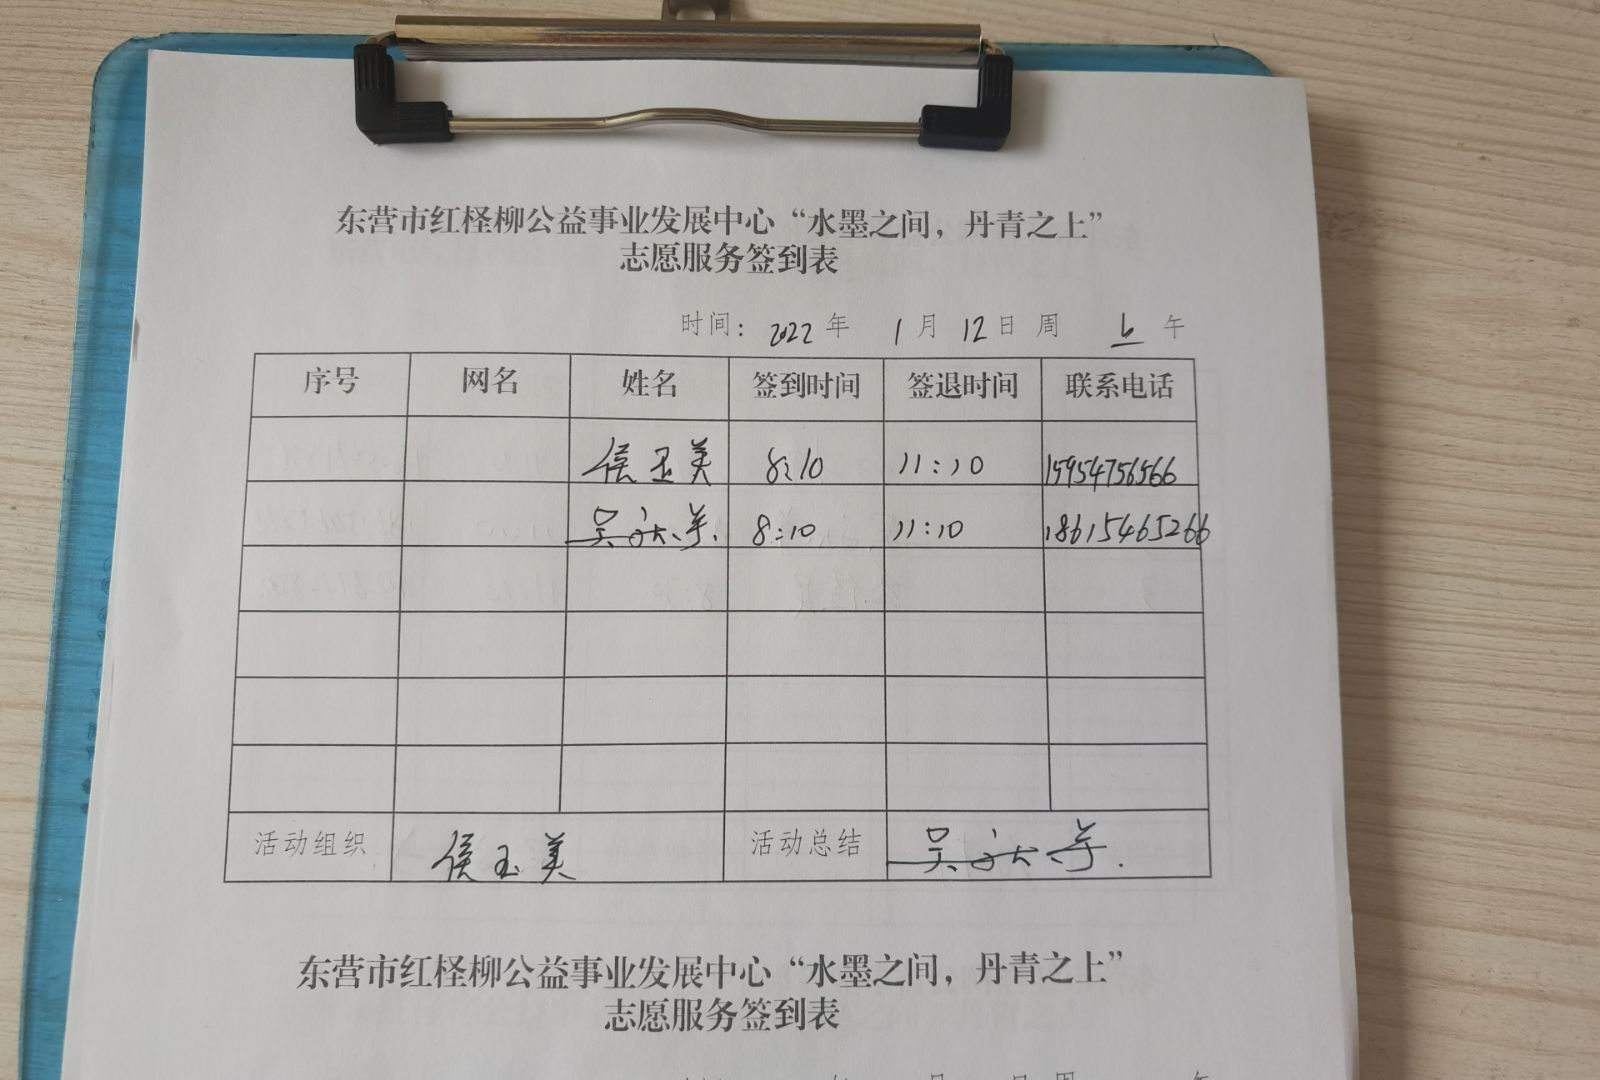 东营市红柽柳公益事业发展中心“水墨之间，丹青之上”
志愿服务签到表
时间：2022年 1月12日 周 上午
序号 网名 姓名 签到时间 签退时间 联系电话
侯玉美 8:10 11:10 15954756566
吴 8:10 11:10 18615465266
活动组织 侯玉美 活动总结 吴
东营市红柽柳公益事业发展中心“水墨之间，丹青之上”
志愿服务签到表